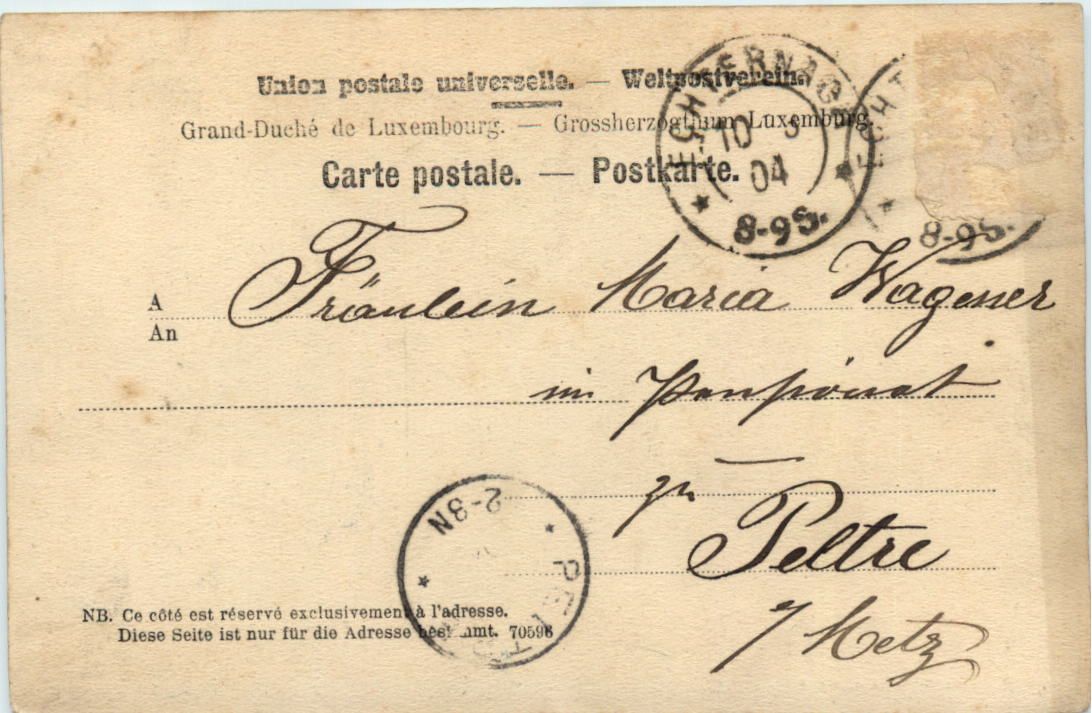 Union postale universelle. — Weltpostverein.
Grand-Duché de Luxembourg. — Grossherzogthum Luxemburg.
Carte postale. — Postkarte.
ECHTERNACH
10 3
04
8-9S.
ECHT
8-9S.
A Fräulein Maria Wagener
An
im Pensionat
zu
Peltre
/ Metz
2-3N
PELTRE
NB. Ce côté est réservé exclusivement à l'adresse.
Diese Seite ist nur für die Adresse bestimmt. 70598